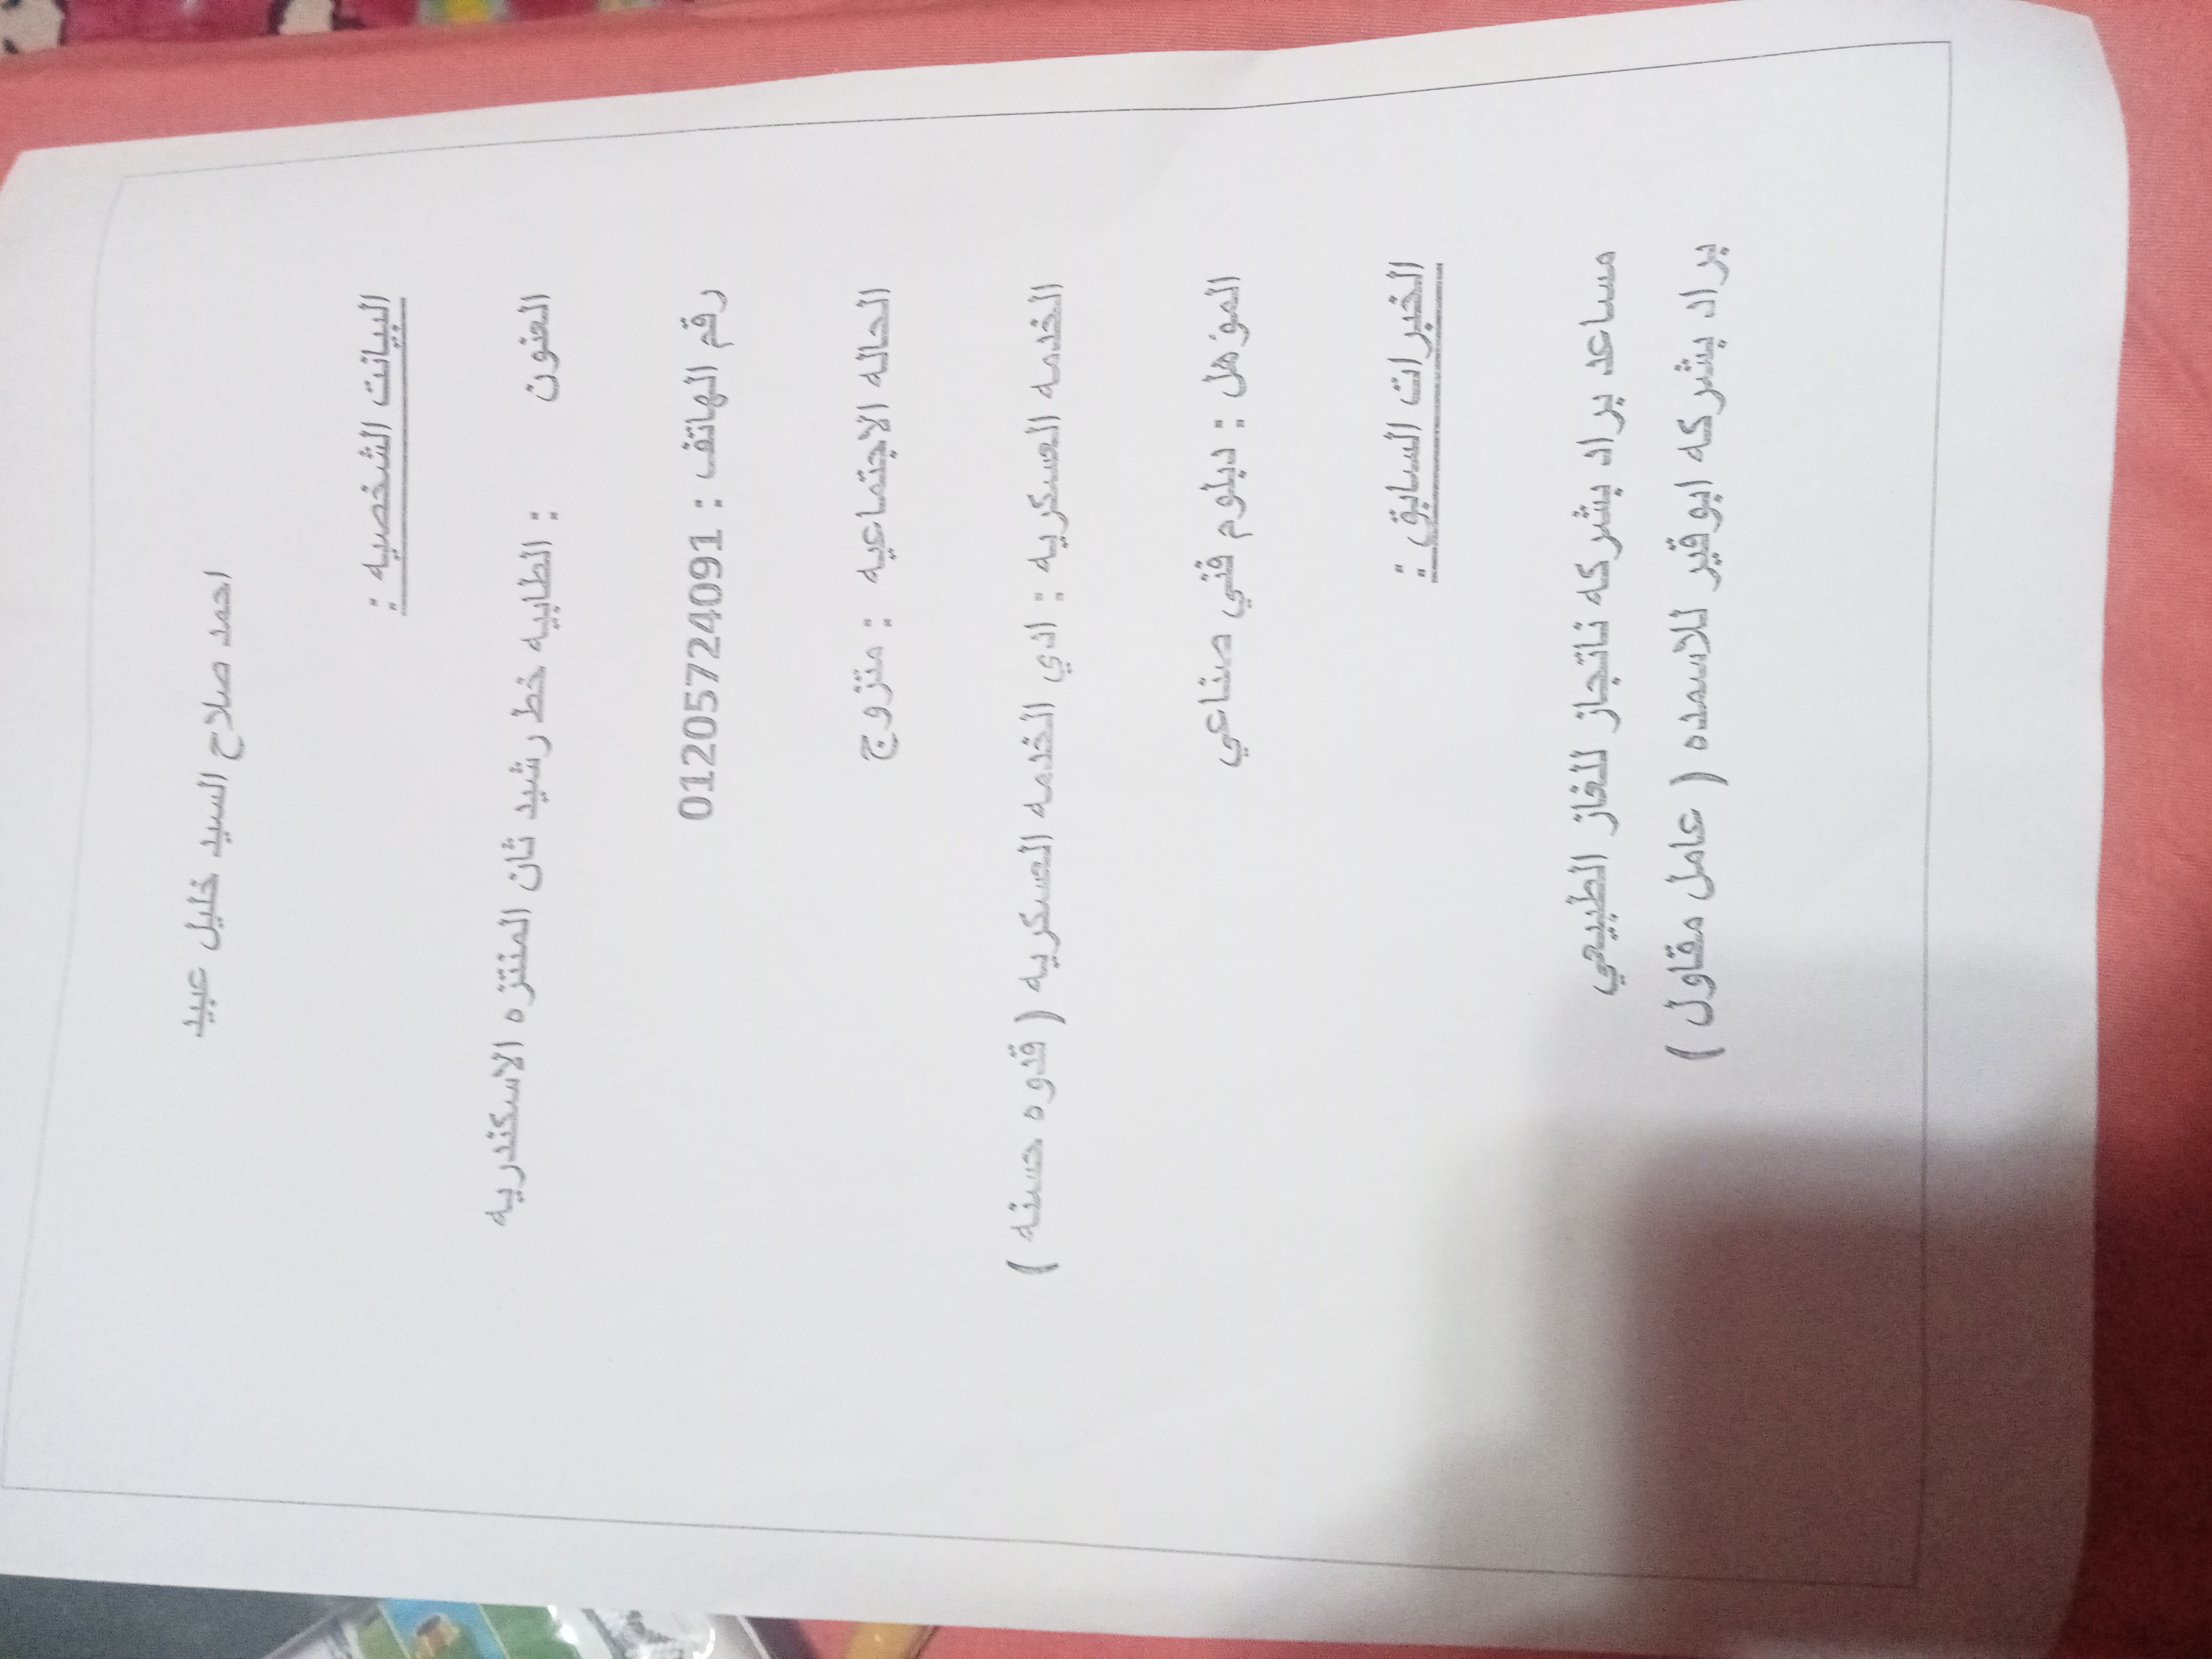 احمد صلاح السيد خليل عبيد
البيانت الشخصيه :
العنون : الطابيه خط رشيد ثان المنتزه الاسكندريه
رقم الهاتف : 01205724091
الحاله الاجتماعيه : متزوج
الخدمه العسكريه : ادي الخدمه العسكريه ( قدوه حسنه )
المؤهل : دبلوم فني صناعي
الخبرات السابق :
مساعد براد بشركه ناتجاز للغاز الطبيعي
براد بشركه ابوقير للاسمده ( عامل مقاول )